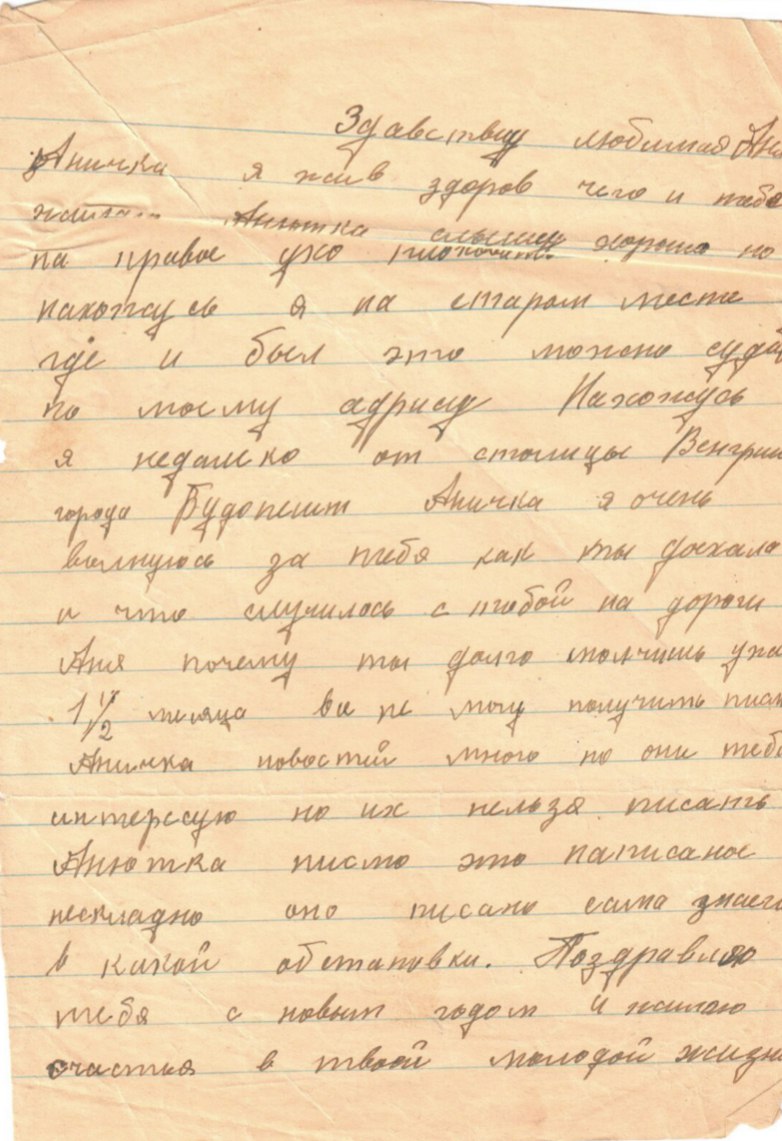 Здавствуй любимая Аня
Аничка я жив здоров чего и тебе
Анютка слышу хорошо но
на правое ухо
нахожусь я на старом месте
где и был это можно суди
по моему адрису Нахожусь
я недалеко от столицы Венгрии
города Будопешт Аничка я очень
валнуюсь за тебя как ты доехала
и что случилось с тобой на дороги
Аня почему ты долго молчишь уже
1 1/2 месяца все не могу получить писм
Аничка новостей много но они тебе
интерссую но их нельзя писать
Анютка писмо это написаное
нескладно оно писано сама знаеш
в какой обстановки. Поздравляю
тебя с новым годом и жилаю
счастья в твоей молодой жизни